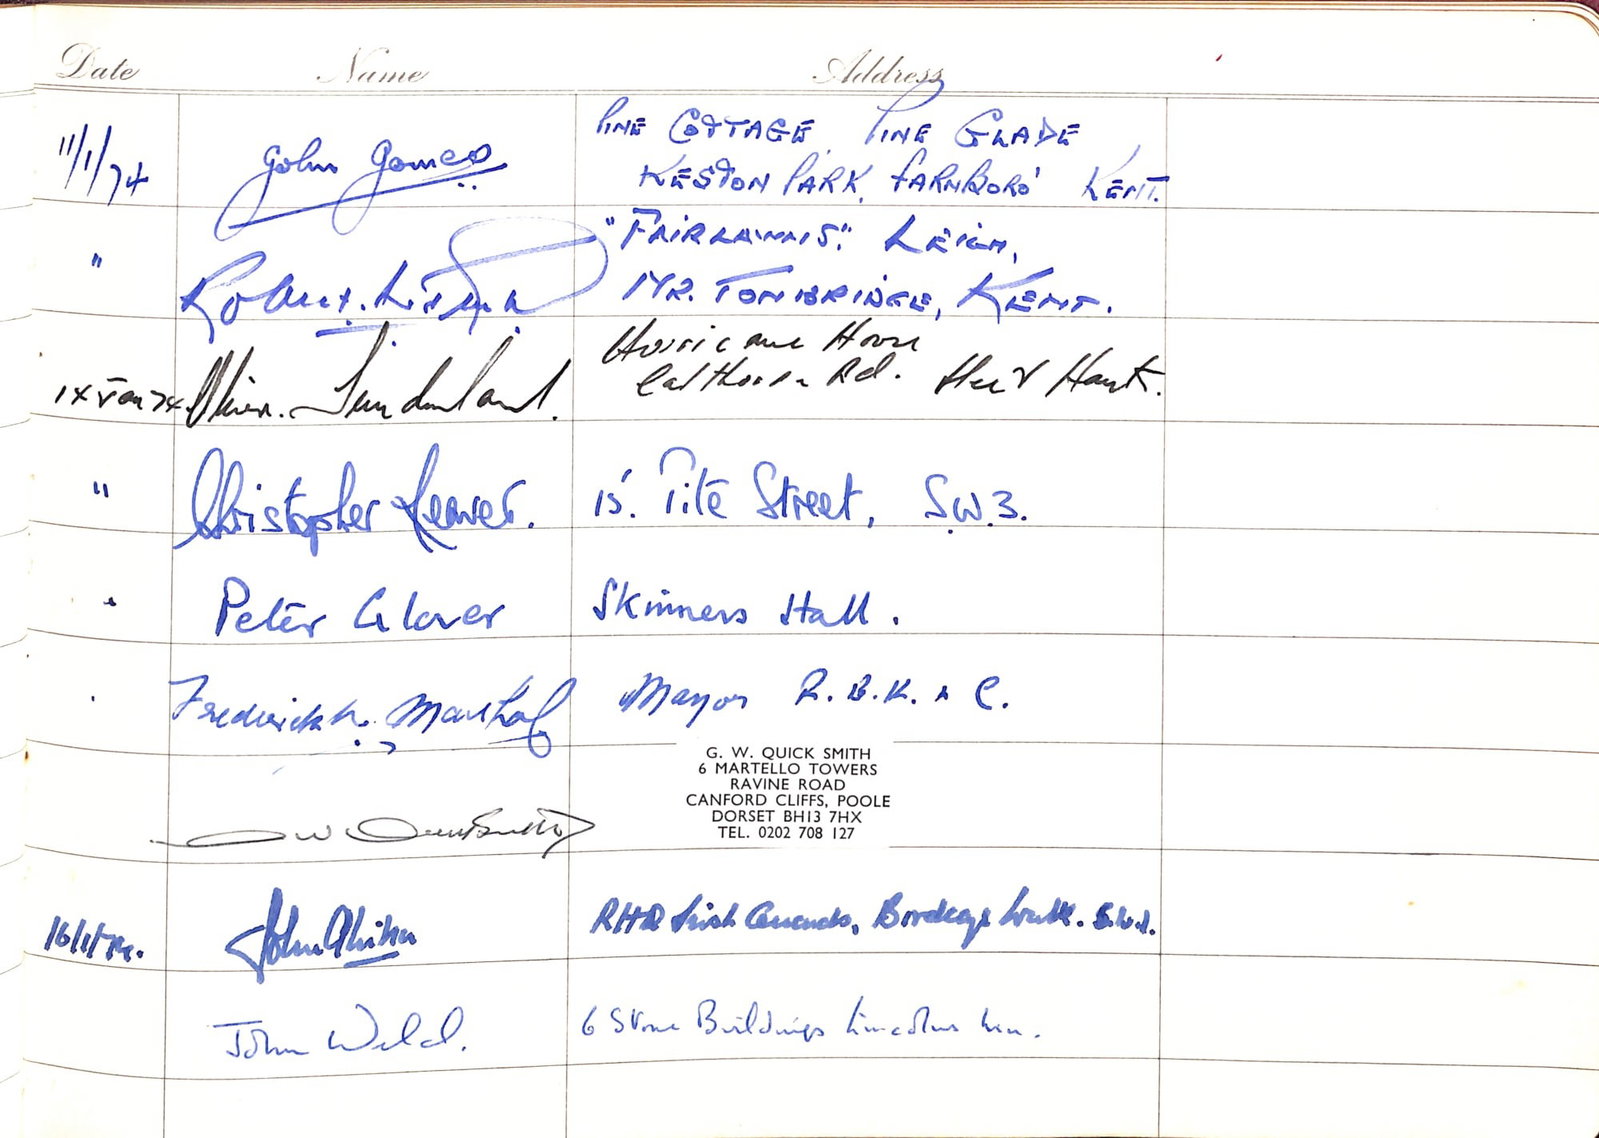 Date Name Address
11/1/74 John Gomes PINE COTTAGE, PINE GLADE,
KESTON PARK, FARNBORO' KENT.
" Robert "FAIRLAWNS". LEIGH,
NR. TONBRIDGE, KENT.
14 Jan 74 Oliver. Sunderland. Hurricane House
Calthorpe Rd. Fleet Hants.
" Christopher 15. Tite Street, S.W.3.
" Peter Glover Skinners Hall.
Frederick Mayor R.B.K. & C.
G. W. QUICK SMITH
6 MARTELLO TOWERS
RAVINE ROAD
CANFORD CLIFFS, POOLE
DORSET BH13 7HX
TEL. 0202 708 127
G W Quick Smith
16/1/74. John RHQ Irish Guards, Birdcage Walk. S.W.1.
John Weld. 6 Stone Buildings Lincolns Inn.